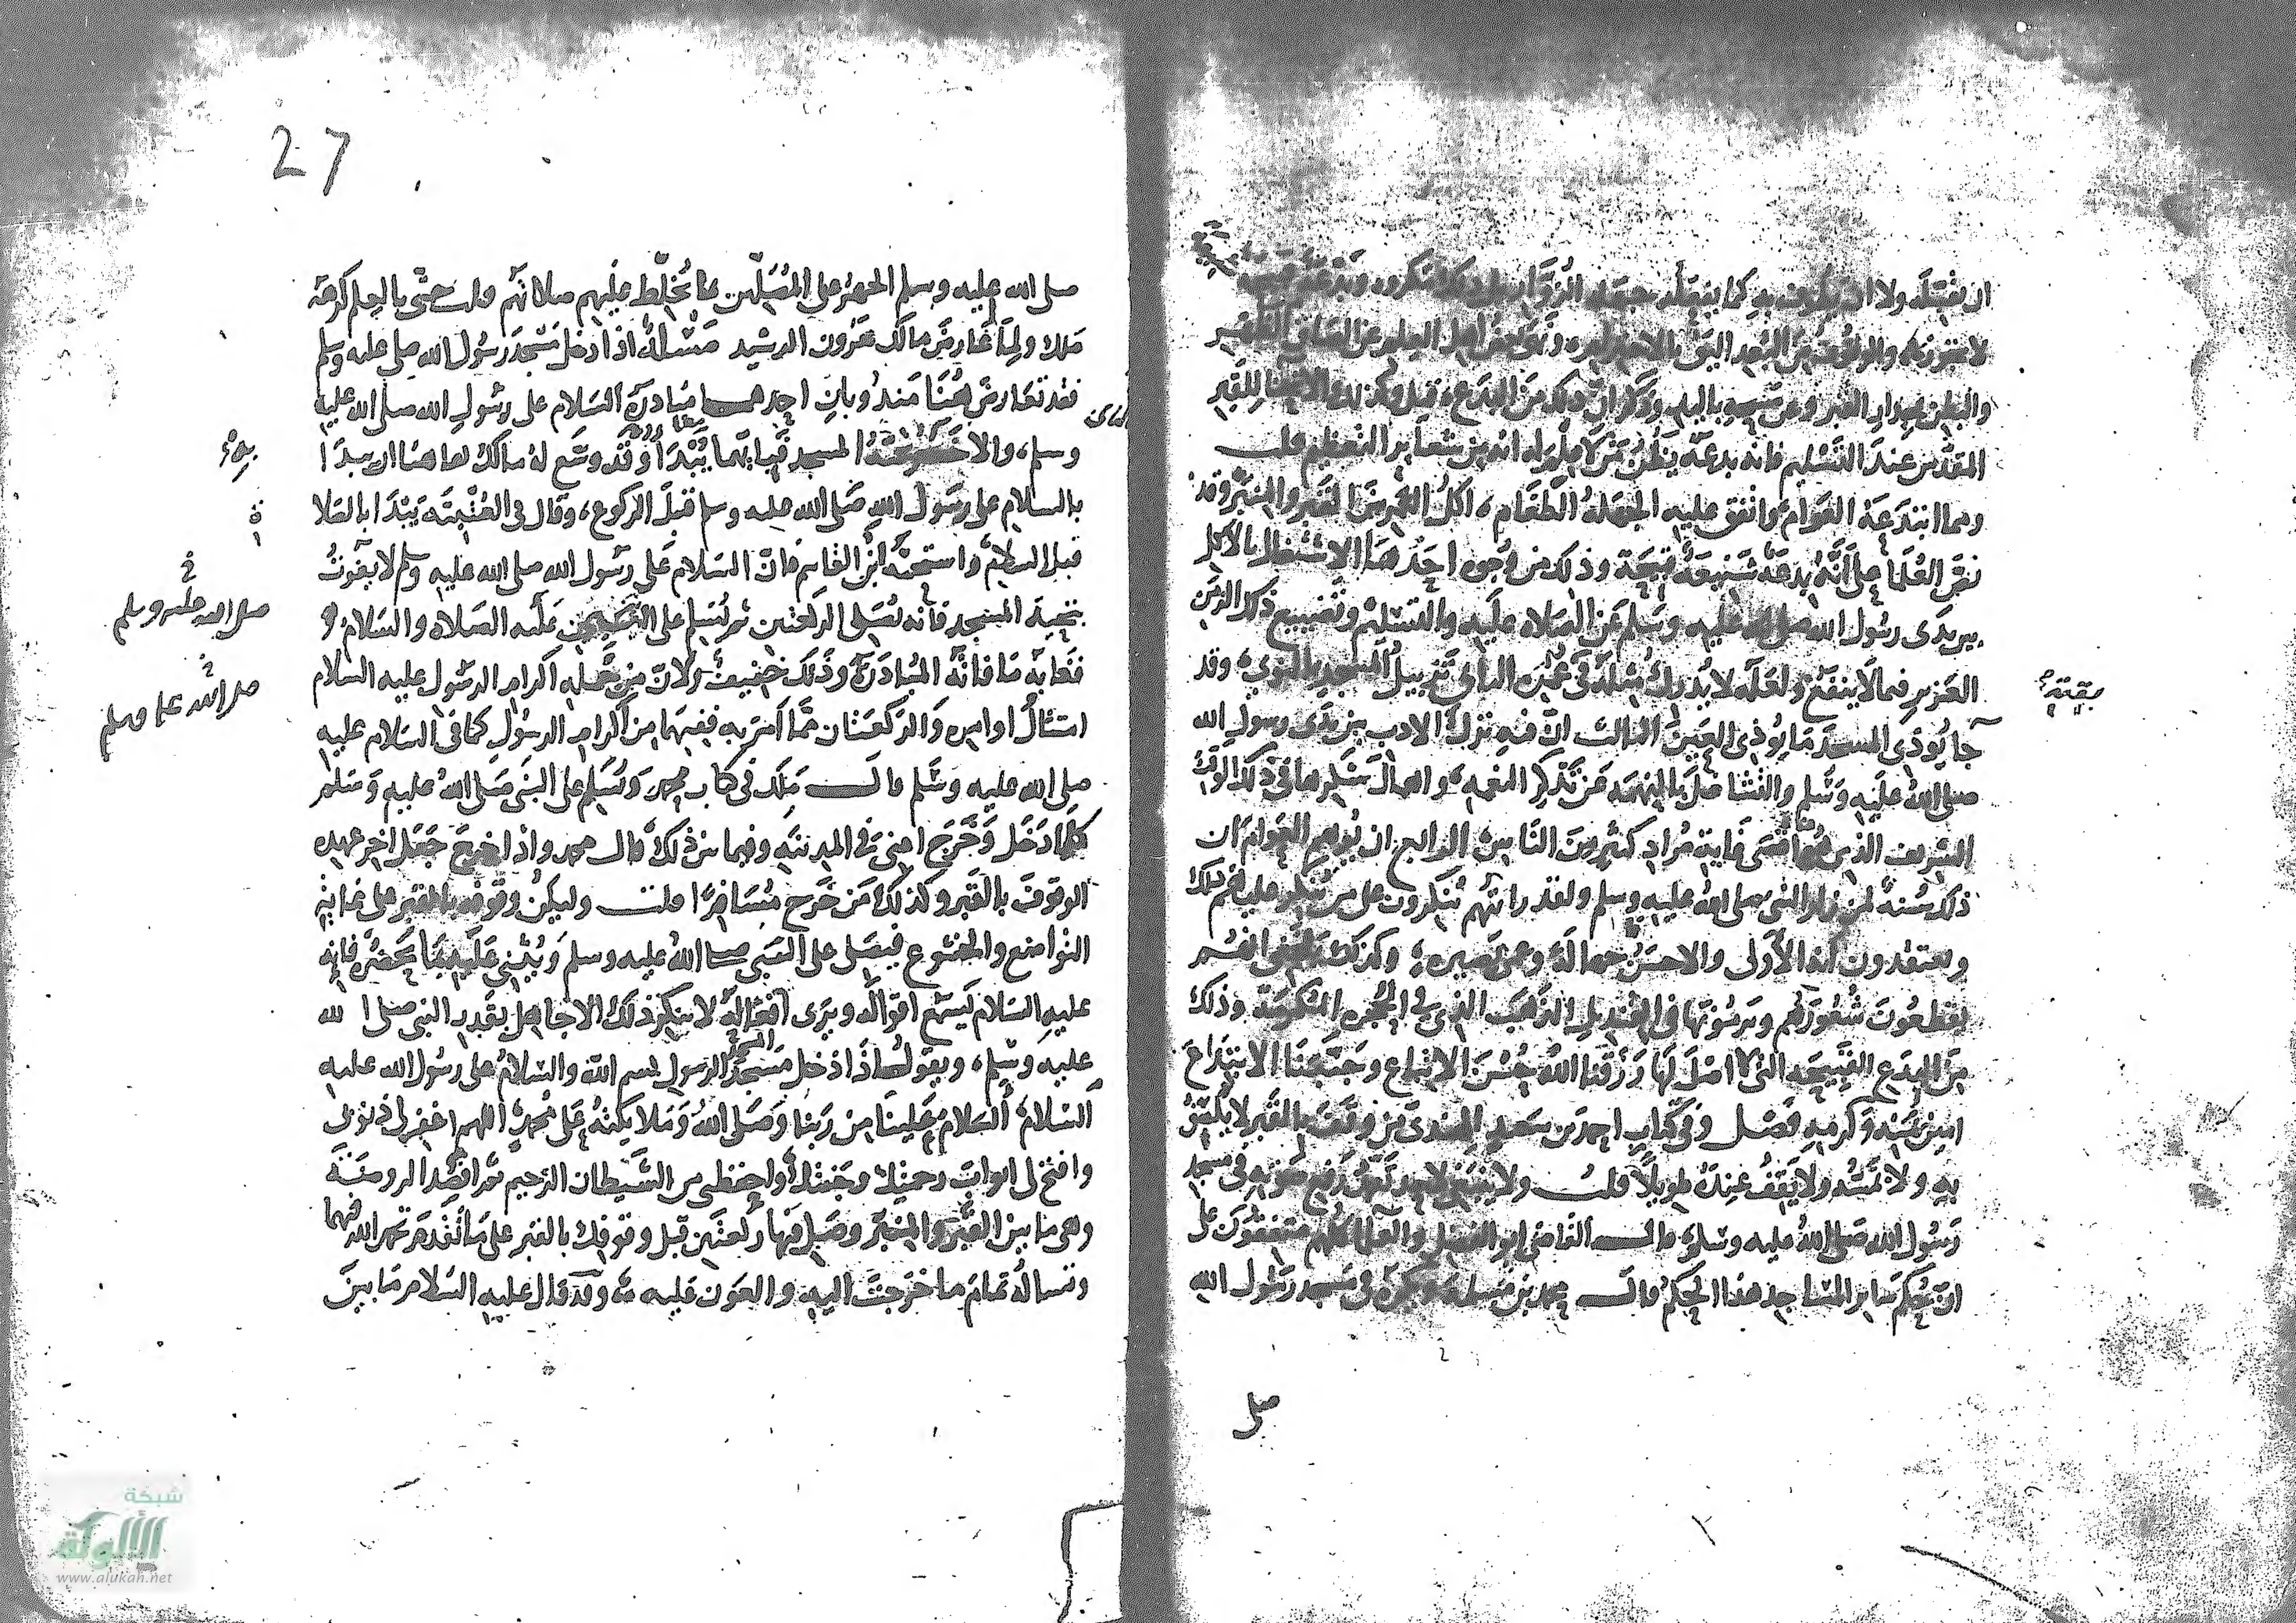 لا ينبغي والوقوف من البعد اليق بالاحترام ونهى بعض اهل العلم عن الصاق الظهر
والبطن بجدار القبر وعن مسحه باليد وذكر ان ذلك من البدع قيل وكذلك الانحنا للقبر
المقدس عند التسليم فانه بدعة يظن من لا علم له انه من شعاير التعظيم قلت
ومما ابتدعة العوام واتفق عليه الجهلة الطغام اكل التمر بين القبر والمنبر وقد
نص العلما على انه بدعة شنيعة قبيحة وذلك من وجوه احدها الاشتغال بالاكل
بين يدى رسول الله صلى الله عليه وسلم عن الصلاة عليه والتسليم وتضييع ذلك الزمن
العزيز فيما لا ينفع ولعله لا يدرك مثله في عمره الثاني تزبيل المسجد بالنوى وقد
جا يوذى المسجد ما يوذى العين الثالث ان فيه ترك الادب بين يدى رسول الله
صلى الله عليه وسلم والتشاغل بالنهمة عن تذكر النعمة واهمال شكرها في ذلك الوقت
الشريف الذى هو اقصى غاية مراد كثير من الناس الرابع ان يوهم العوام ان
ذلك سنة لمن زار النبى صلى الله عليه وسلم ولقد رايتهم ينكرون على من ينكر عليهم ذلك
ويعتقدون انه الأولى والاحسن جهالة وعمى بصيرة وكذلك
يقطعون شعورهم ويرمونها في القنديل الذهب الذى في الحجرة المكرمة وذلك
من البدع القبيحة التى لا اصل لها رزقنا الله حسن الاتباع وجنبنا الابتداع
امين بمنه وكرمه فصل وفي كتاب احمد بن سعيد الهندى من وقف بالقبر لا يلتصق
به ولا يمسه ولا يقف عنده طويلا قلت ولا ينبغى لاحد تعمد رفع صوته في مسجد
رسول الله صلى الله عليه وسلم قال القاضى ابو الفضل والعلما كلهم متفقون على
ان حكم ساير المساجد هذا الحكم قال محمد بن مسلمة ويكره في مسجد رسول الله
صلى
بقية
27
صلى الله عليه وسلم الجهر على المصلين بما يخلط عليهم صلاتهم
فقد تعارض هنا مندوبان احدهما مبادرة السلام على رسول الله صلى الله عليه
وسلم والاخر تحية المسجد فبايهما يبدا وقد وسع له مالك هاهنا ان يبدا
بالسلام على رسول الله صلى الله عليه وسلم قبل الركوع وقال في العتبية يبدا بالصلا
قبل السلام واستحبه ابن القاسم فان السلام على رسول الله صلى الله عليه وسلم لا يفوت
بتحية المسجد فانه يصلى الركعتين ثم يسلم على عليه الصلاة والسلام
فغاية ما فاته المبادرة وذلك خفيف ولان من جملة اكرام الرسول عليه السلام
امتثال اوامره والركعتان مما امر به ففيهما من اكرام الرسول كما في السلام عليه
صلى الله عليه وسلم قال ملك في كتاب محمد ويسلم على النبى صلى الله عليه وسلم
كلما دخل وخرج اعنى في المدينة وفيما بين ذلك قال محمد واذا خرج جعل اخر عهده
الوقوف بالقبر وكذلك من خرج مسافرا قلت وليكن وقوفه بالقبر على غاية
التواضع والخشوع فيصلى على النبى صلى الله عليه وسلم ويثنى عليه بما يحضره فانه
عليه السلام يسمع اقواله ويرى افعاله لا ينكر ذلك الا جاهل بقدر النبى صلى الله
عليه وسلم ويقول اذا دخل مسجد الرسول بسم الله والسلام على رسول الله عليه
السلام السلام علينا من ربنا وصلى الله وملايكته على محمد اللهم اغفر لى ذنوبى
وافتح لى ابواب رحمتك وجنتك واحفظنى من الشيطان الرجيم ثم اقصد الروضة
وهى ما بين القبر والمنبر وصل فيها ركعتين قبل وقوفك بالقبر على ما تقدم تحمد الله فيهما
وتساله تمام ما خرجت اليه والعون عليه وقد قال عليه السلام ما بين
صلى الله عليه وسلم
شبكة
الألوكة
www.alukah.net